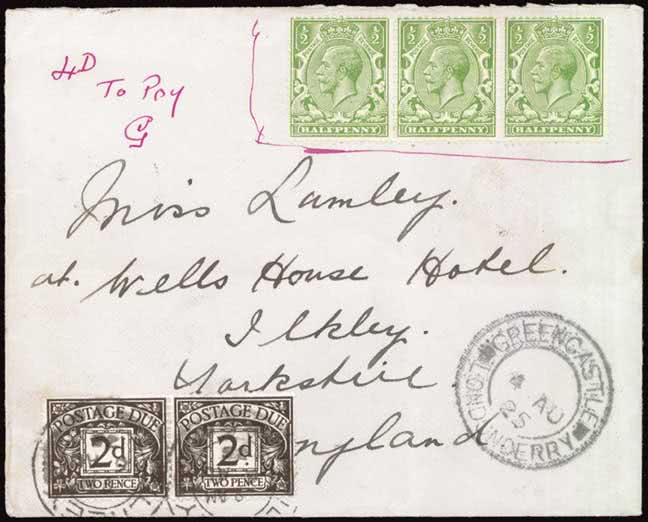 ½ ½ ½ ½ ½ ½
HALFPENNY HALFPENNY HALFPENNY
4D
To Pay
G
Miss Lumley.
at. Wells House Hotel.
Ilkley.
Yorkshire.
England
GREENCASTLE
LONDONDERRY
4 AU
25
POSTAGE DUE POSTAGE DUE
2d 2d
TWO PENCE TWO PENCE